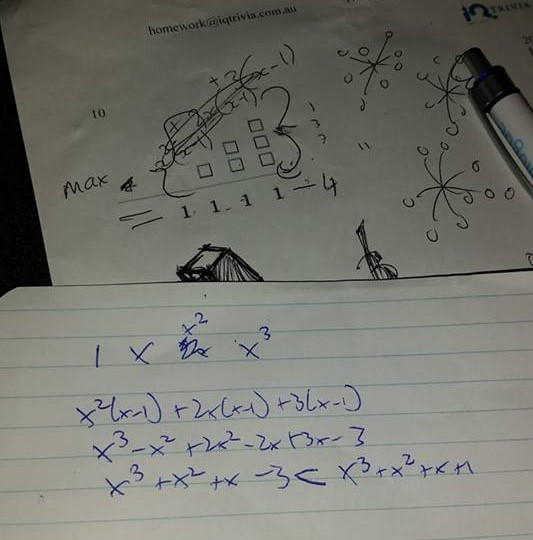 homework@iqtrivia.com.au
iQ TRIVIA
10
+2(x-1)
max
= 1 1 1 1 - 4
1 x x² x³
x²(x-1) + 2x(x-1) + 3(x-1)
x³ - x² + 2x² - 2x + 3x - 3
x³ + x² + x - 3 < x³ + x² + x + 1